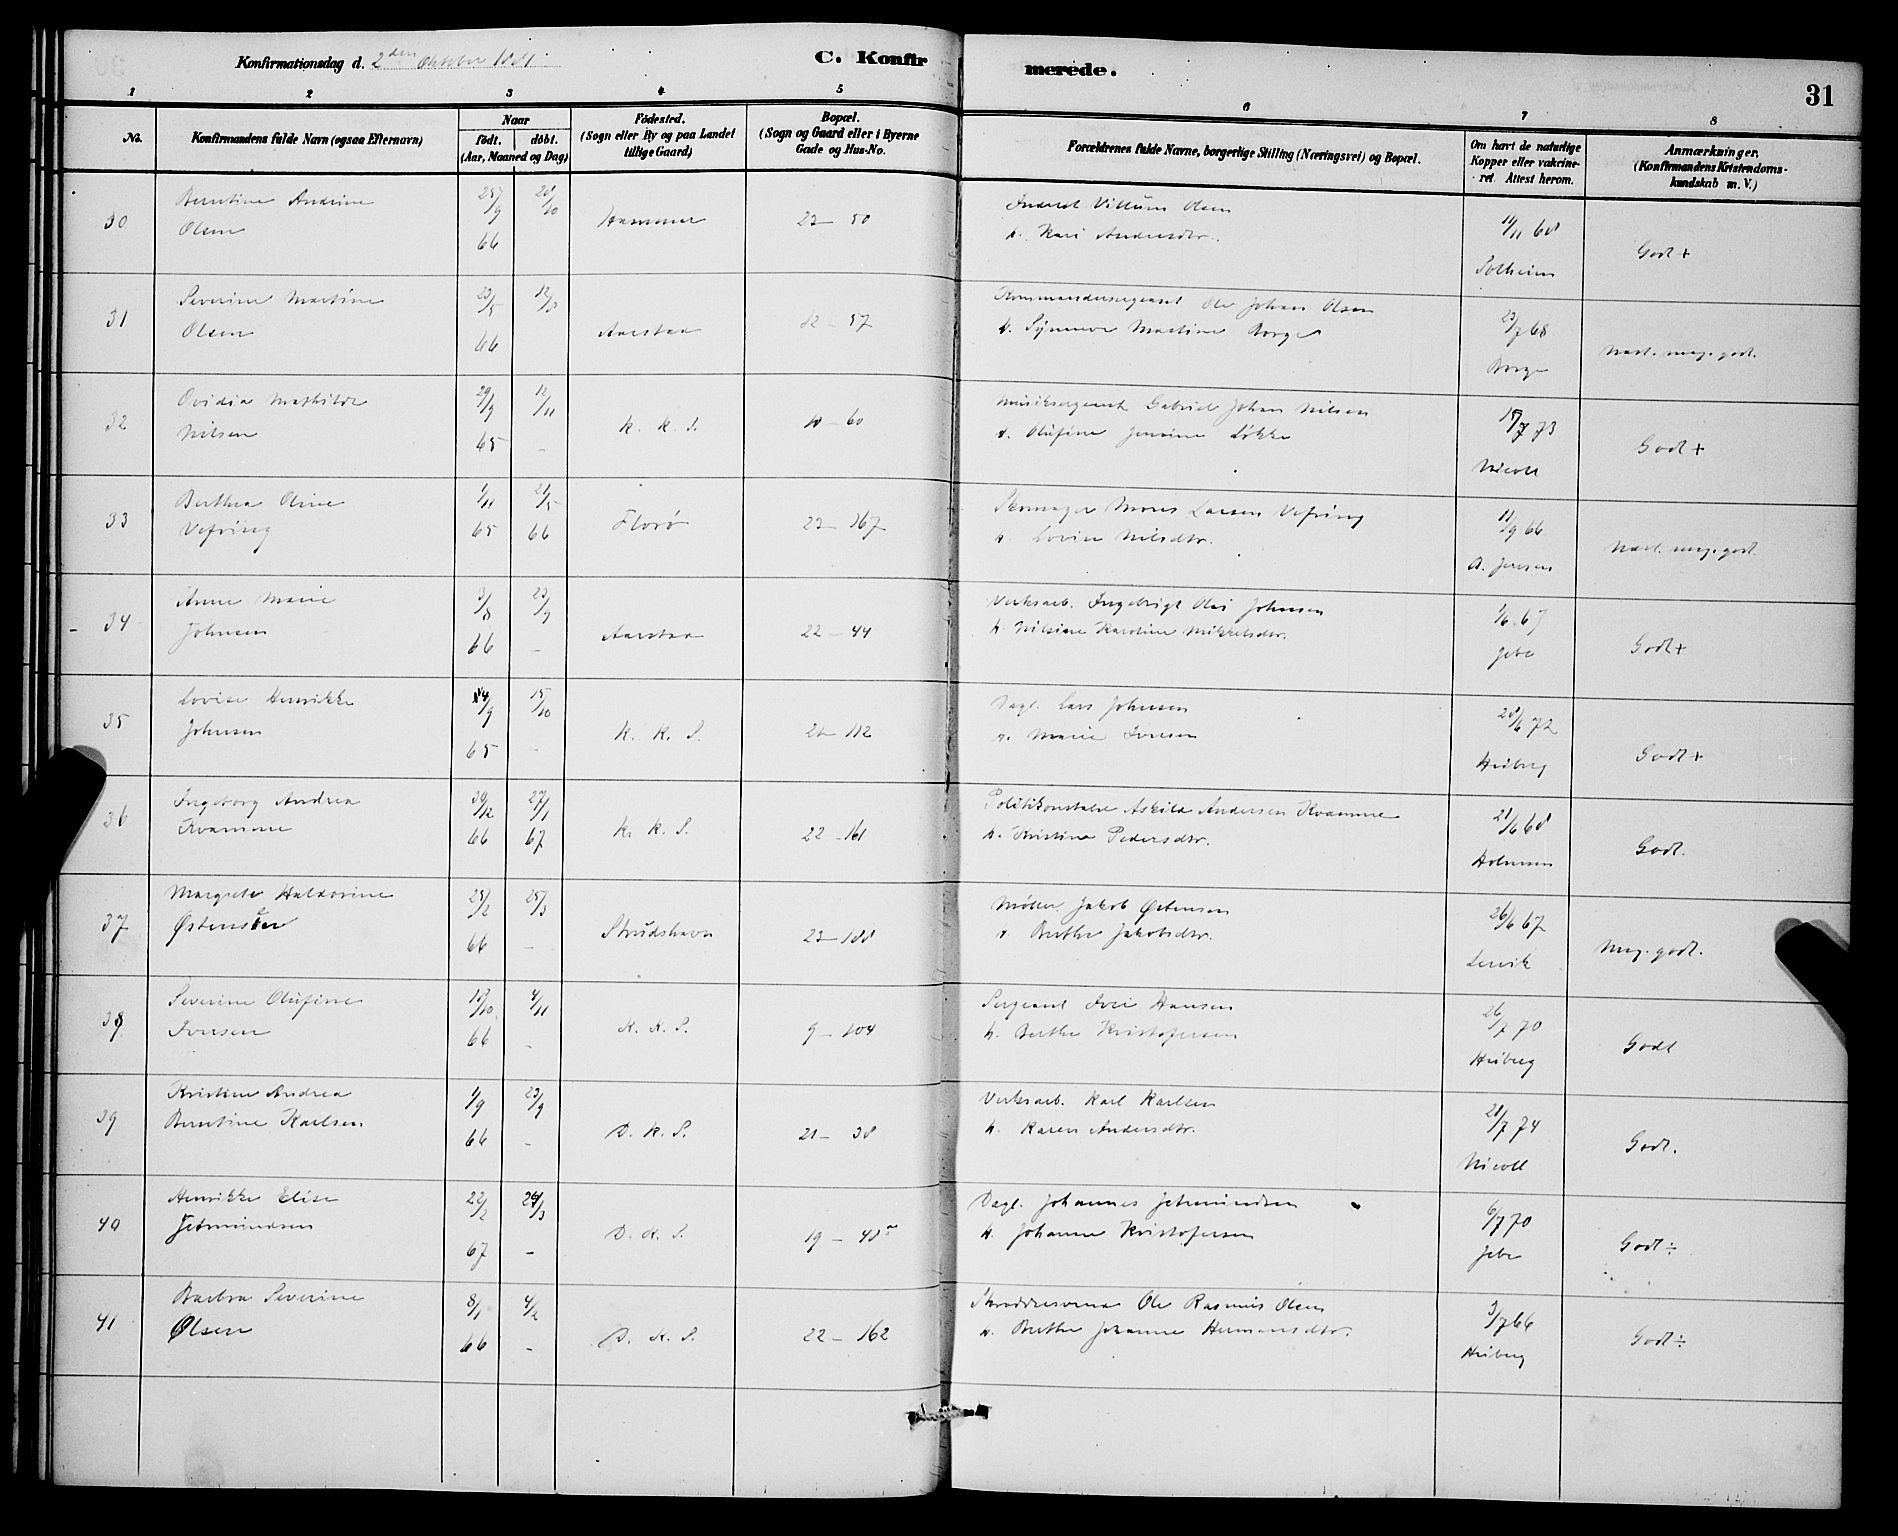 Konfirmationsdag d. 2den Oktober 1881.
C. Konfirmerede.
31
1 2 3 4 5 6 7 8
No.
Konfirmandens fulde Navn (ogsaa Efternavn)
Naar
födt. döbt.
(Aar, Maaned og Dag)
Födested.
(Sogn eller By og paa Landet
tillige Gaard)
Bopæl.
(Sogn og Gaard eller i Byerne
Gade og Hus-No.
Forældrenes fulde Navne, borgerlige Stilling (Næringsvei) og Bopæl.
Om havt de naturlige
Kopper eller vakcine-
ret. Attest herom.
Anmærkninger.
(Konfirmandens Kristendoms-
kundskab m. V.)
30 Berntine Andrine
Olsen
66 Hammer 23 – 50
Villum Olsen
h. Kari Andersdtr.
11/11 68
Solheim
Godt +
31 Severine Martine
Olsen
23/5 66 Aarstad 12 – 57
Kommandersergeant Ole Johan Olsen
h. Synneve Martine Borge
23/7 68
Borge
Næst. meg. godt.
32 Ovidia Mathilde
Nilsen
29/9 65 12/11 – K. K. S. 10 – 60
Musiksergeant Gabriel Johan Nilsen
h. Olufine Jensine Løkke
73
Nicoll
Godt +
33 Berthea Oline
Vefring
1/11 65 21/5 66 Florø 23 – 367
Skomager Mons Larsen Vefring
h. Lovise Nilsdtr.
11/9 66
A. Jensen
Næst. meg. godt.
34 Anne Marie
Johnsen
3/8 66 23/9 – Aarstad 22 – 44
Verksarb. Ingebrigt Olai Johnsen
h. Nilsine Karoline Mikkelsdtr.
1/6 67
Jebe
Godt +
35 Lovise Henrikke
Johnsen
14/9 65 15/10 – K. K. S. 21 – 112
Dagl. Lars Johnsen
h. Marie Iversen
28/6 72
Heiberg
Godt +
36 Ingeborg Andrea
Kvamme
30/12 66 27/1 67 K. K. S. 22 – 161
Politikonstabel Askild Andersen Kvamme
h. Kristine Pedersdtr.
21/6 68
Holmsen
Godt.
37 Margrete Haldorine
Østensen
25/2 66 25/3 – Strudshavn 23 – 188
Møller Jakob Østensen
h. Berthe Jakobsdtr.
26/6 67
Lervik
Meg. godt.
38 Severine Olufine
Iversen
18/10 66 4/11 – K. K. S. 9 – 104
Sergeant Iver Hansen
h. Berthe Kristofersen
26/7 70
Heiberg
Godt
39 Kristine Andrea
Berntine Karlsen
1/9 66 23/9 – D. K. S. 21 – 38
Verksarb. Karl Karlsen
h. Karen Andersdtr.
21/7 74
Nicoll
Godt.
40 Henrikke Elise
Jetmundsen
22/2 67 24/3 – D. K. S. 19 – 48a
Dagl. Johannes Jetmundsen
h. Johanne Kristofersen
6/7 70
Jebe
Godt ÷
41 Barbra Severine
Olsen
8/1 66 4/2 – D. K. S. 22 – 162
Skræddersvend Ole Rasmus Olsen
h. Berthe Johanne Hermansdtr.
3/7 66
Heiberg
Godt ÷